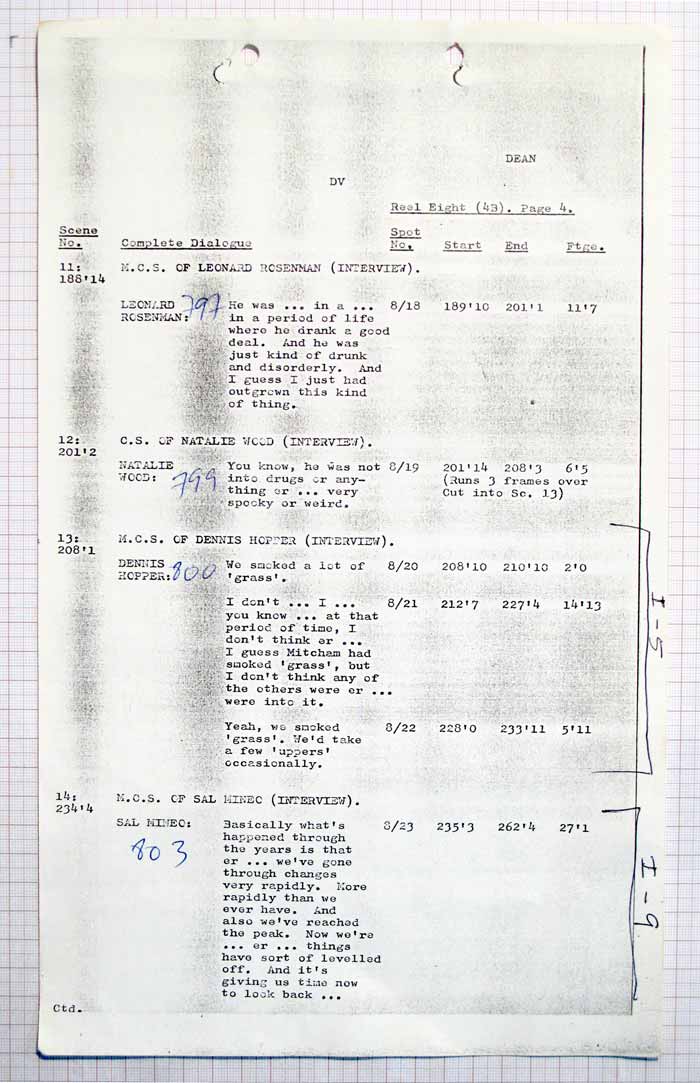 DEAN
DV
Reel Eight (4B). Page 4.
Scene No. Complete Dialogue Spot No. Start End Ftge.
11: M.C.S. OF LEONARD ROSENMAN (INTERVIEW).
188'14
LEONARD 797 He was ... in a ... 8/18 189'10 201'1 11'7
ROSENMAN: in a period of life
where he drank a good
deal. And he was
just kind of drunk
and disorderly. And
I guess I just had
outgrown this kind
of thing.
12: C.S. OF NATALIE WOOD (INTERVIEW).
201'2
NATALIE You know, he was not 8/19 201'14 208'3 6'5
WOOD: 799 into drugs or any- (Runs 3 frames over
thing er ... very Cut into Sc. 13)
spooky or weird.
13: M.C.S. OF DENNIS HOPPER (INTERVIEW).
208'1
DENNIS We smoked a lot of 8/20 208'10 210'10 2'0
HOPPER: 800 'grass'.
I don't ... I ... 8/21 212'7 227'4 14'13
you know ... at that
period of time, I
don't think er ...
I guess Mitcham had
smoked 'grass', but
I don't think any of
the others were er ...
were into it.
I-5
Yeah, we smoked 8/22 228'0 233'11 5'11
'grass'. We'd take
a few 'uppers'
occasionally.
14: M.C.S. OF SAL MINEO (INTERVIEW).
234'4
SAL MINEO: Basically what's 8/23 235'3 262'4 27'1
803 happened through
the years is that
er ... we've gone
through changes
very rapidly. More
rapidly than we
ever have. And
also we've reached
the peak. Now we're
... er ... things
have sort of levelled
off. And it's
giving us time now
to look back ...
I-9
Ctd.